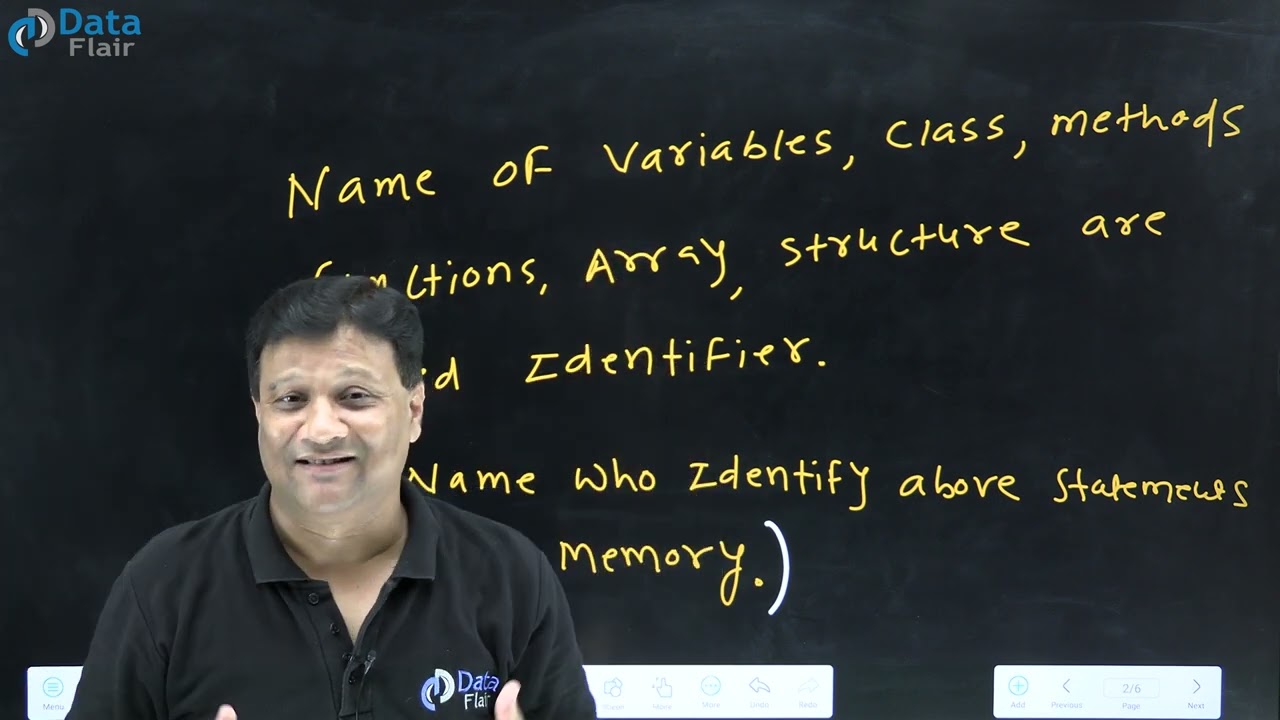 Data
Flair
Name of Variables, Class, methods
functions, Array, structure are
Identifier.
Name Who Identify above Statements
memory.)
Data
Flair
Menu
Eraser
Move
More
Undo
Redo
Add
Previous
2/6
Page
Next